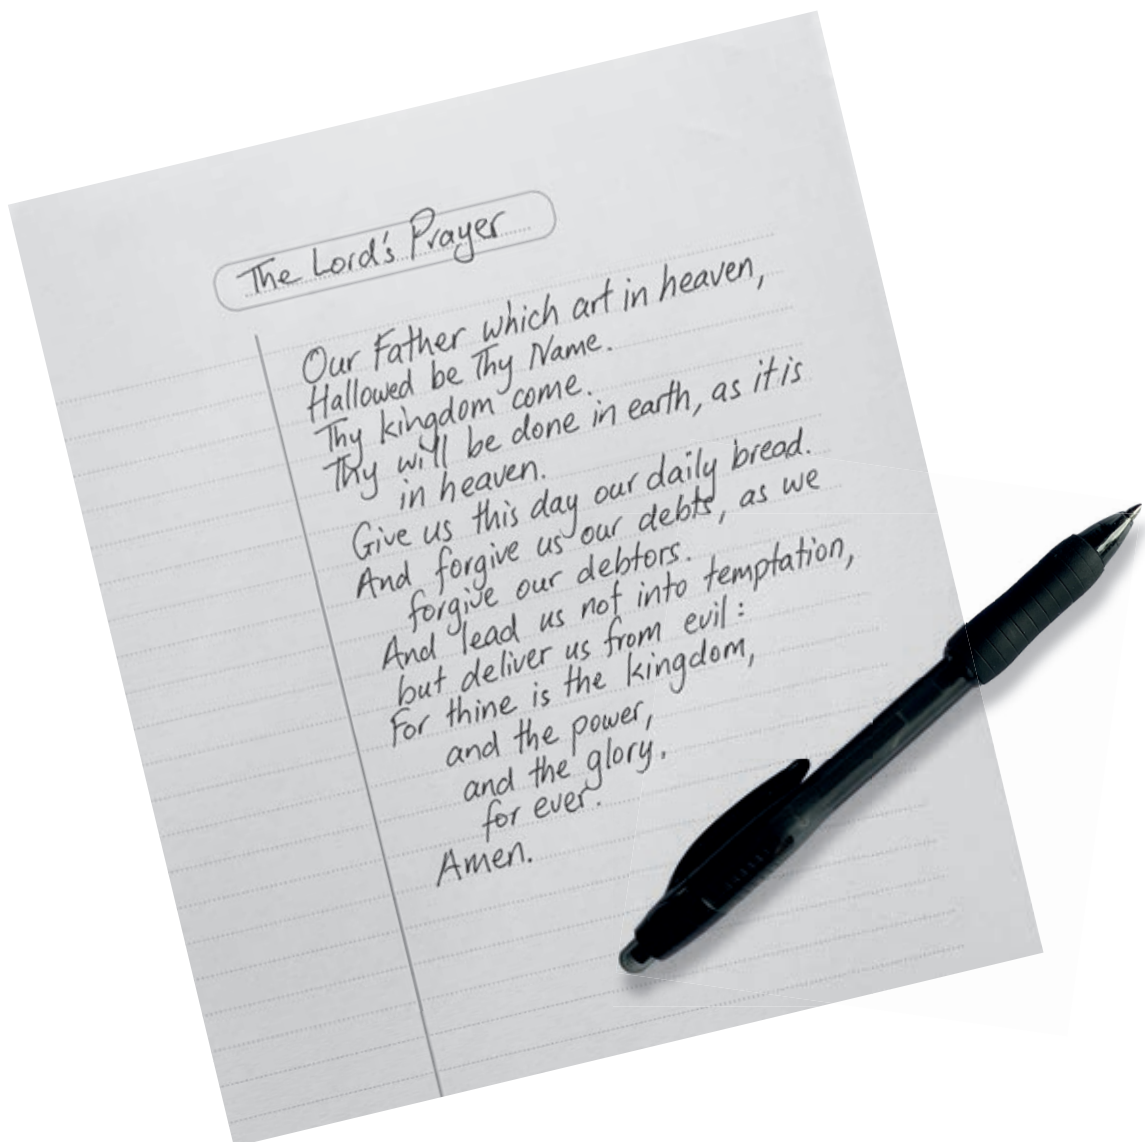 The Lord's Prayer
Our Father which art in heaven,
Hallowed be Thy Name.
Thy kingdom come.
Thy will be done in earth, as it is
in heaven.
Give us this day our daily bread.
And forgive us our debts, as we
forgive our debtors.
And lead us not into temptation,
but deliver us from evil:
For thine is the kingdom,
and the power,
and the glory.
for ever.
Amen.